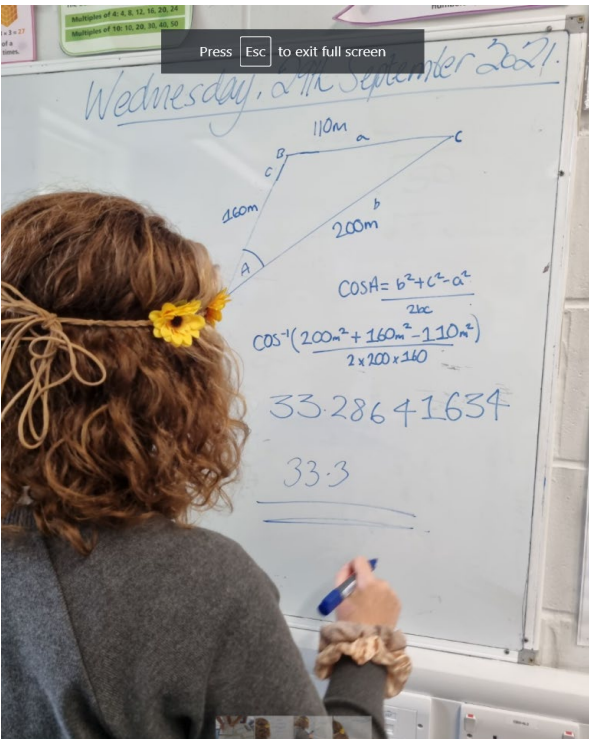 Multiples of 4: 4, 8, 12, 16, 20, 24
Multiples of 10: 10, 20, 30, 40, 50
times.
Press Esc to exit full screen
Wednesday, 29th September 2021.
110m
a
B
C
c
160m
b
200m
A
COSA = b²+c²-a²
2bc
cos⁻¹(200m² + 160m² - 110m²)
2 x 200 x 160
33.28641634
33.3